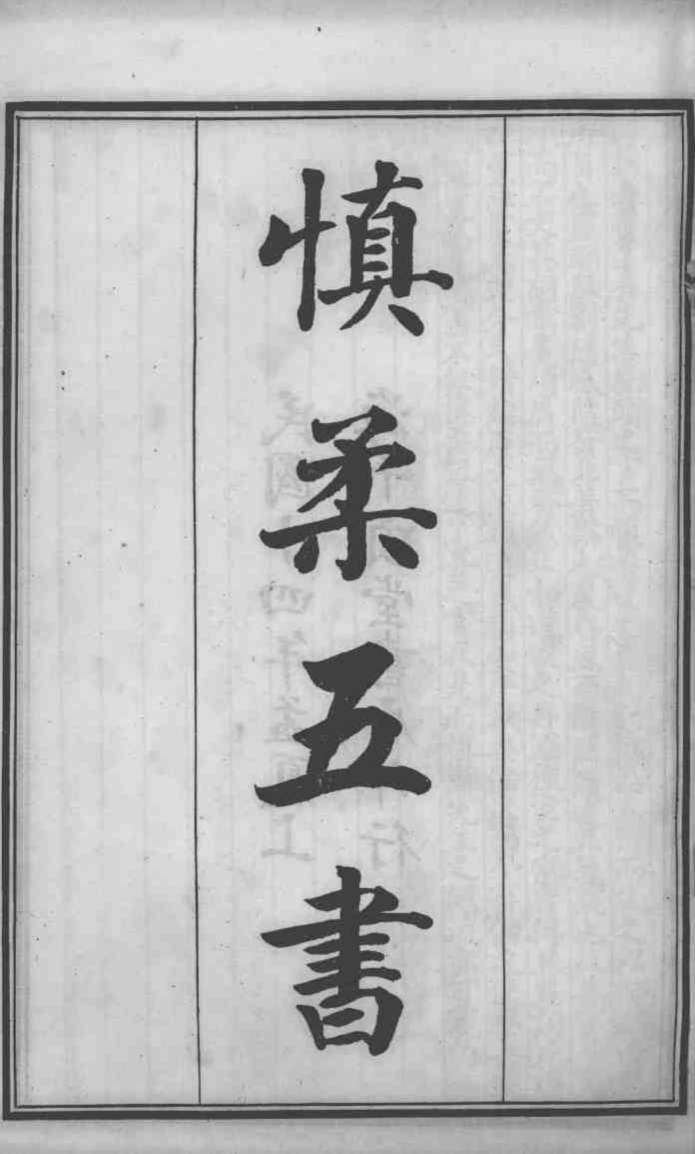 慎柔五書